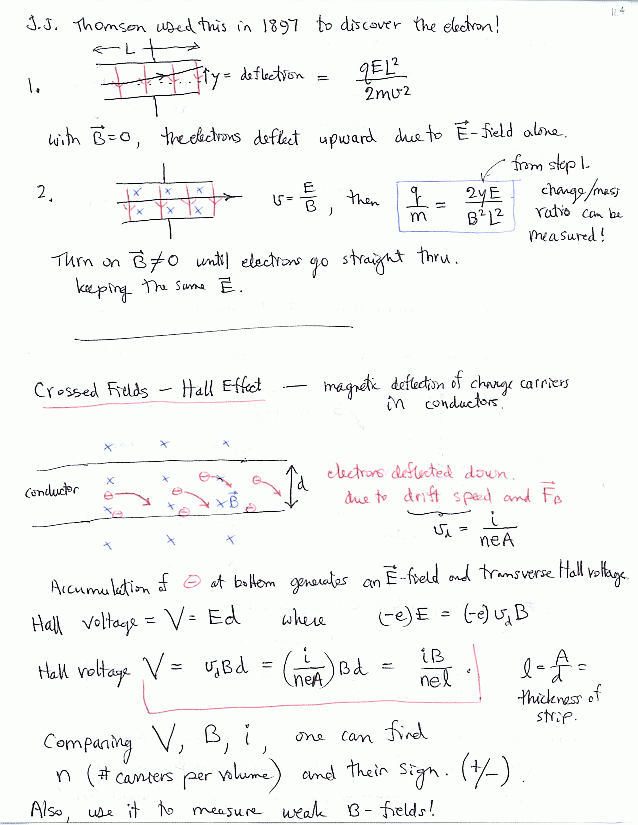 12.4
J.J. Thomson used this in 1897 to discover the electron!
← L →
1. y = deflection = qEL² / 2mv²
with B⃗=0, the electrons deflect upward due to E⃗-field alone.
from step 1.
2. v = E/B , then q/m = 2yE / B²L² charge/mass
ratio can be
measured!
Turn on B⃗≠0 until electrons go straight thru.
keeping the same E⃗.
Crossed Fields — Hall Effect — magnetic deflection of charge carriers
in conductors.
conductor B⃗ d electrons deflected down.
due to drift speed and F⃗B
v_d = i / neA
Accumulation of ⊖ at bottom generates an E⃗-field and transverse Hall voltage.
Hall voltage = V = Ed where (-e)E = (-e)v_dB
Hall voltage V = v_dBd = (i/neA)Bd = iB/nel . l = A/d =
thickness of
strip.
Comparing V, B, i, one can find
n (# carriers per volume) and their sign. (+/-).
Also, use it to measure weak B-fields!